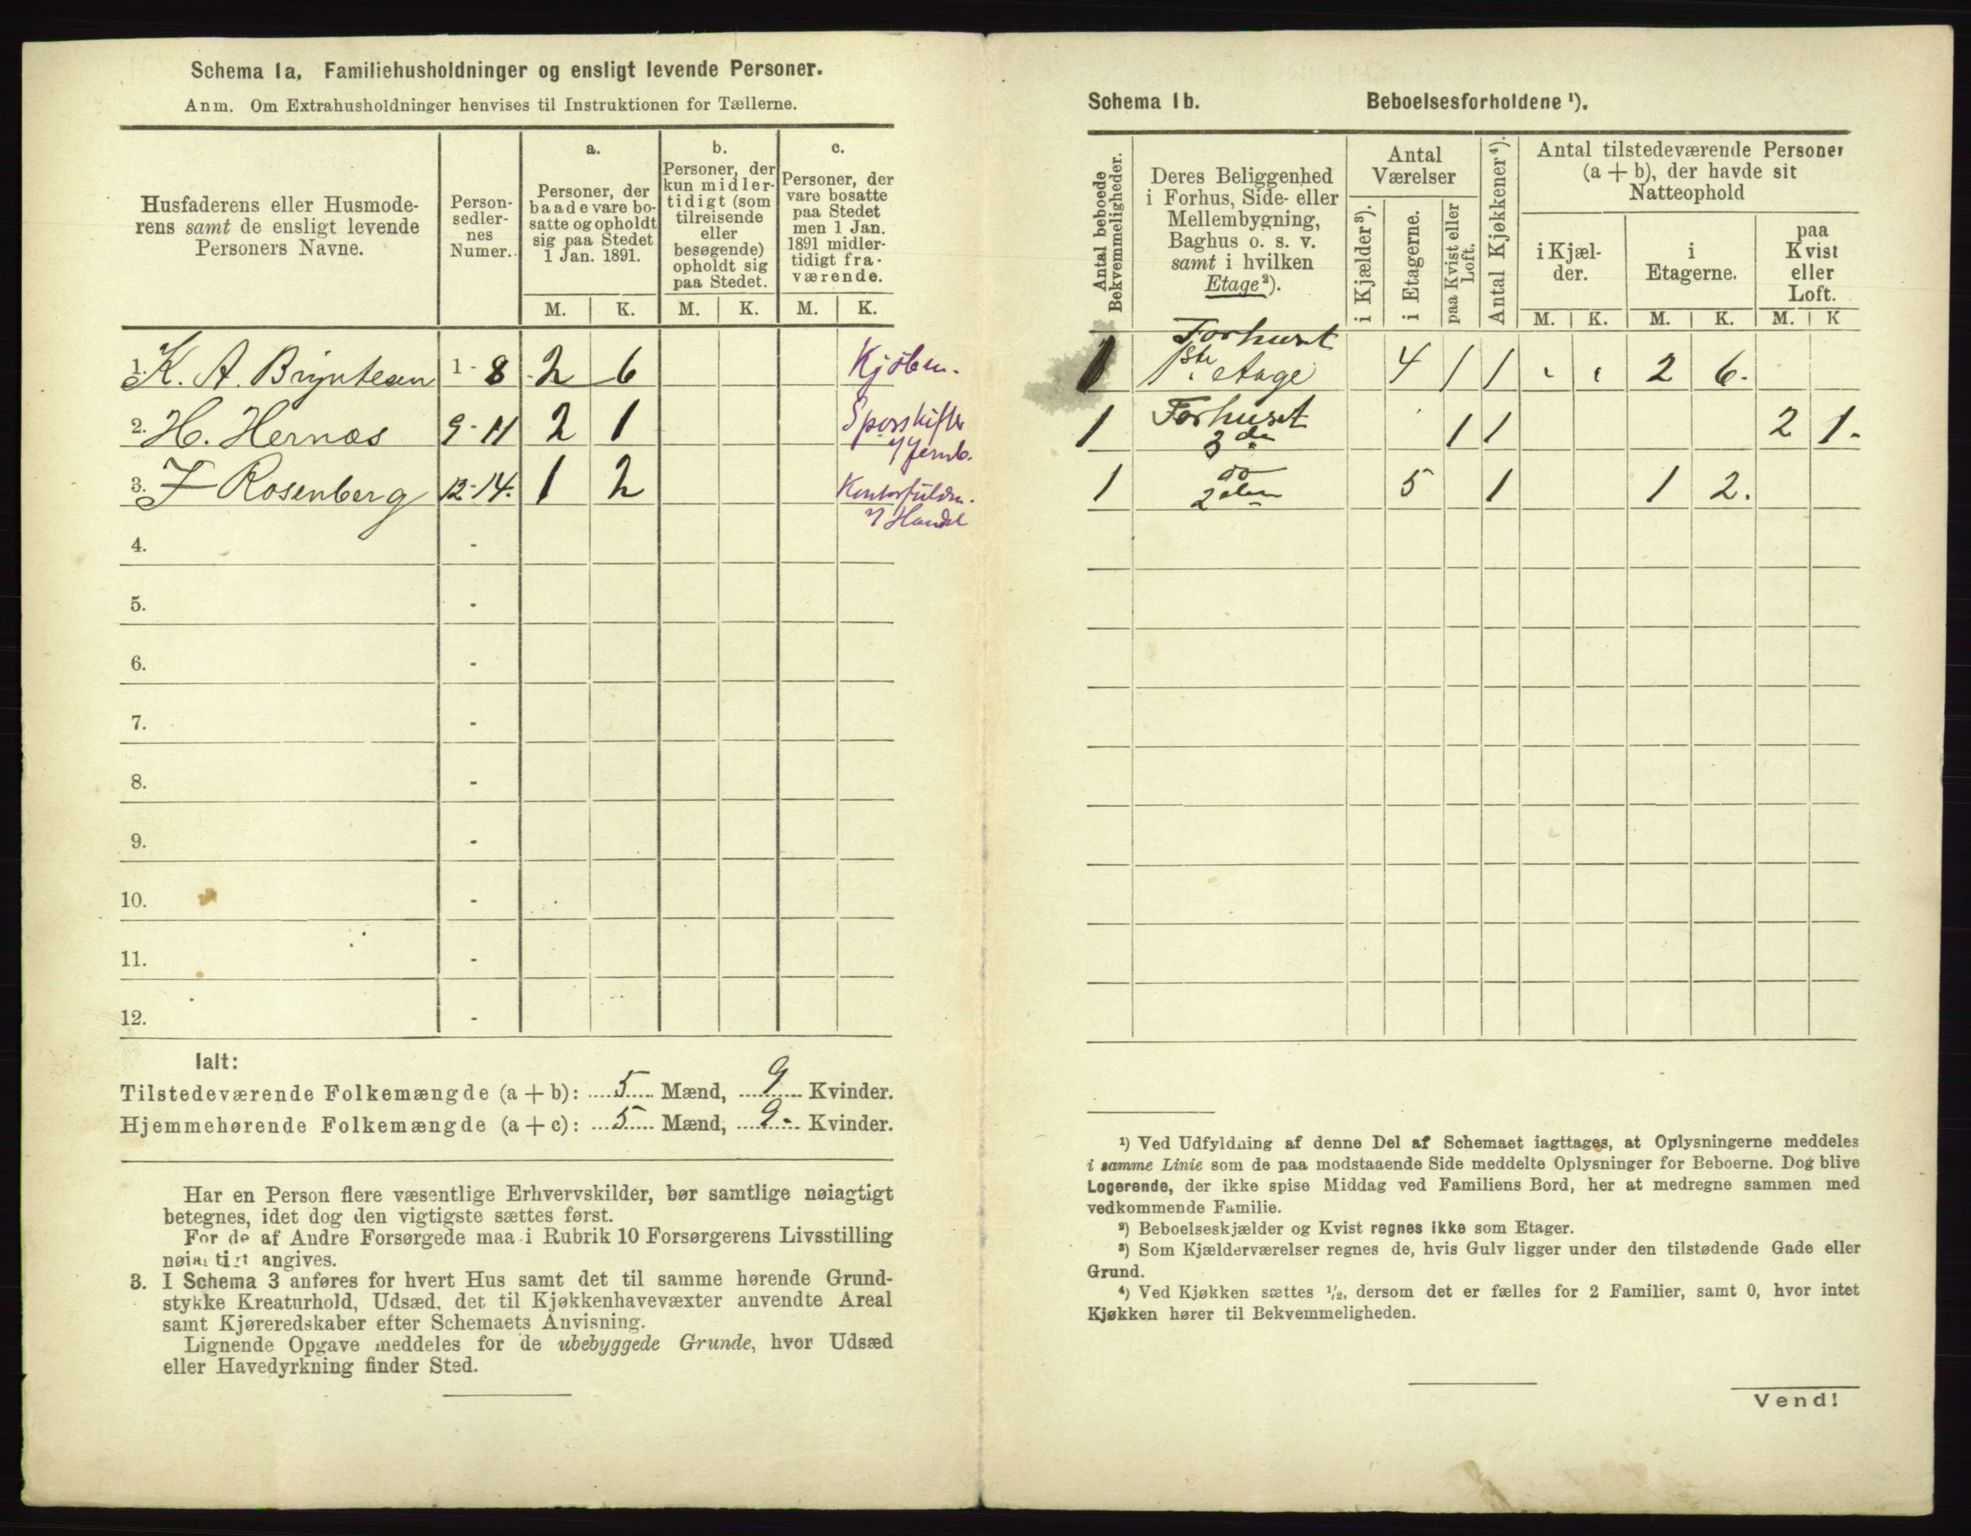 Schema 1a. Familiehusholdninger og ensligt levende Personer.
Anm. Om Extrahusholdninger henvises til Instruktionen for Tællerne.
Husfaderens eller Husmode-
rens samt de ensligt levende
Personers Navne.
Person-
sedler-
nes
Numer.
a.
Personer, der
baade vare bo-
satte og opholdt
sig paa Stedet
1 Jan. 1891.
b.
Personer, der
kun midler-
tidigt (som
tilreisende
eller
besøgende)
opholdt sig
paa Stedet.
c.
Personer, der
vare bosatte
paa Stedet
men 1 Jan.
1891 midler-
tidigt fra-
værende.
M. K. M. K. M. K.
1. K. A. Bryntesen 1-8 2 6 Kjøbm.
2. H. Hernæs 9-11 2 1 Sporskifter
v Jernb.
3. F Rosenberg 12-14. 1 2
v Handel
4. -
5. -
6. -
7. -
8. -
9. -
10. -
11. -
12. -
Ialt:
Tilstedeværende Folkemængde (a + b): 5 Mænd, 9 Kvinder.
Hjemmehørende Folkemængde (a + c): 5 Mænd, 9. Kvinder.
Har en Person flere væsentlige Erhvervskilder, bør samtlige nøiagtigt
betegnes, idet dog den vigtigste sættes først.
For de af Andre Forsørgede maa i Rubrik 10 Forsørgerens Livsstilling
nøiagtigt angives.
3. I Schema 3 anføres for hvert Hus samt det til samme hørende Grund-
stykke Kreaturhold, Udsæd, det til Kjøkkenhavevæxter anvendte Areal
samt Kjøreredskaber efter Schemaets Anvisning.
Lignende Opgave meddeles for de ubebyggede Grunde, hvor Udsæd
eller Havedyrkning finder Sted.
Schema 1b. Beboelsesforholdene ¹).
Antal beboede
Bekvemmeligheder.
Deres Beliggenhed
i Forhus, Side- eller
Mellembygning,
Baghus o. s. v.
samt i hvilken
Etage ²).
Antal
Værelser
i Kjælder ³).
i Etagerne.
paa Kvist eller
Loft.
Antal Kjøkkener ⁴).
Antal tilstedeværende Personer
(a + b), der havde sit
Natteophold
i Kjæl-
der.
i
Etagerne.
paa
Kvist
eller
Loft.
M. K. M. K. M. K
Forhuset
1 1ste etage 4 1 1 2 6.
1 Forhuset 1 1 2 1.
3de
1 do 5 1 1 2.
2den
¹) Ved Udfyldning af denne Del af Schemaet iagttages, at Oplysningerne meddeles
i samme Linie som de paa modstaaende Side meddelte Oplysninger for Beboerne. Dog blive
Logerende, der ikke spise Middag ved Familiens Bord, her at medregne sammen med
vedkommende Familie.
²) Beboelseskjælder og Kvist regnes ikke som Etager.
³) Som Kjælderværelser regnes de, hvis Gulv ligger under den tilstødende Gade eller
Grund.
⁴) Ved Kjøkken sættes ½, dersom det er fælles for 2 Familier, samt 0, hvor intet
Kjøkken hører til Bekvemmeligheden.
Vend!